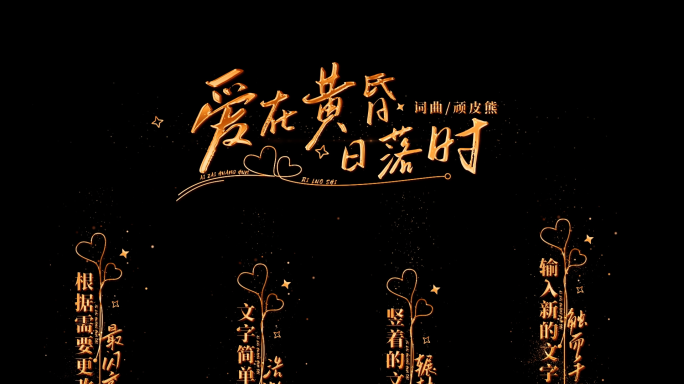 爱在黄昏
日落时
词曲/顽皮熊
AI ZAI HUANG HUN
RI LUO SHI
根据需要更改
最闪亮
文字简单
浩
竖着的文
辗
输入新的文字
触而